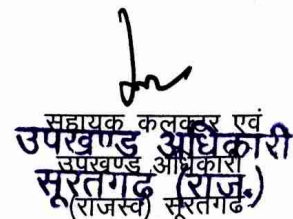 सहायक कलक्टर एवं
उपखण्ड अधिकारी
उपखण्ड अधिकारी
सूरतगढ़ (राज.)
(राजस्व) सूरतगढ़